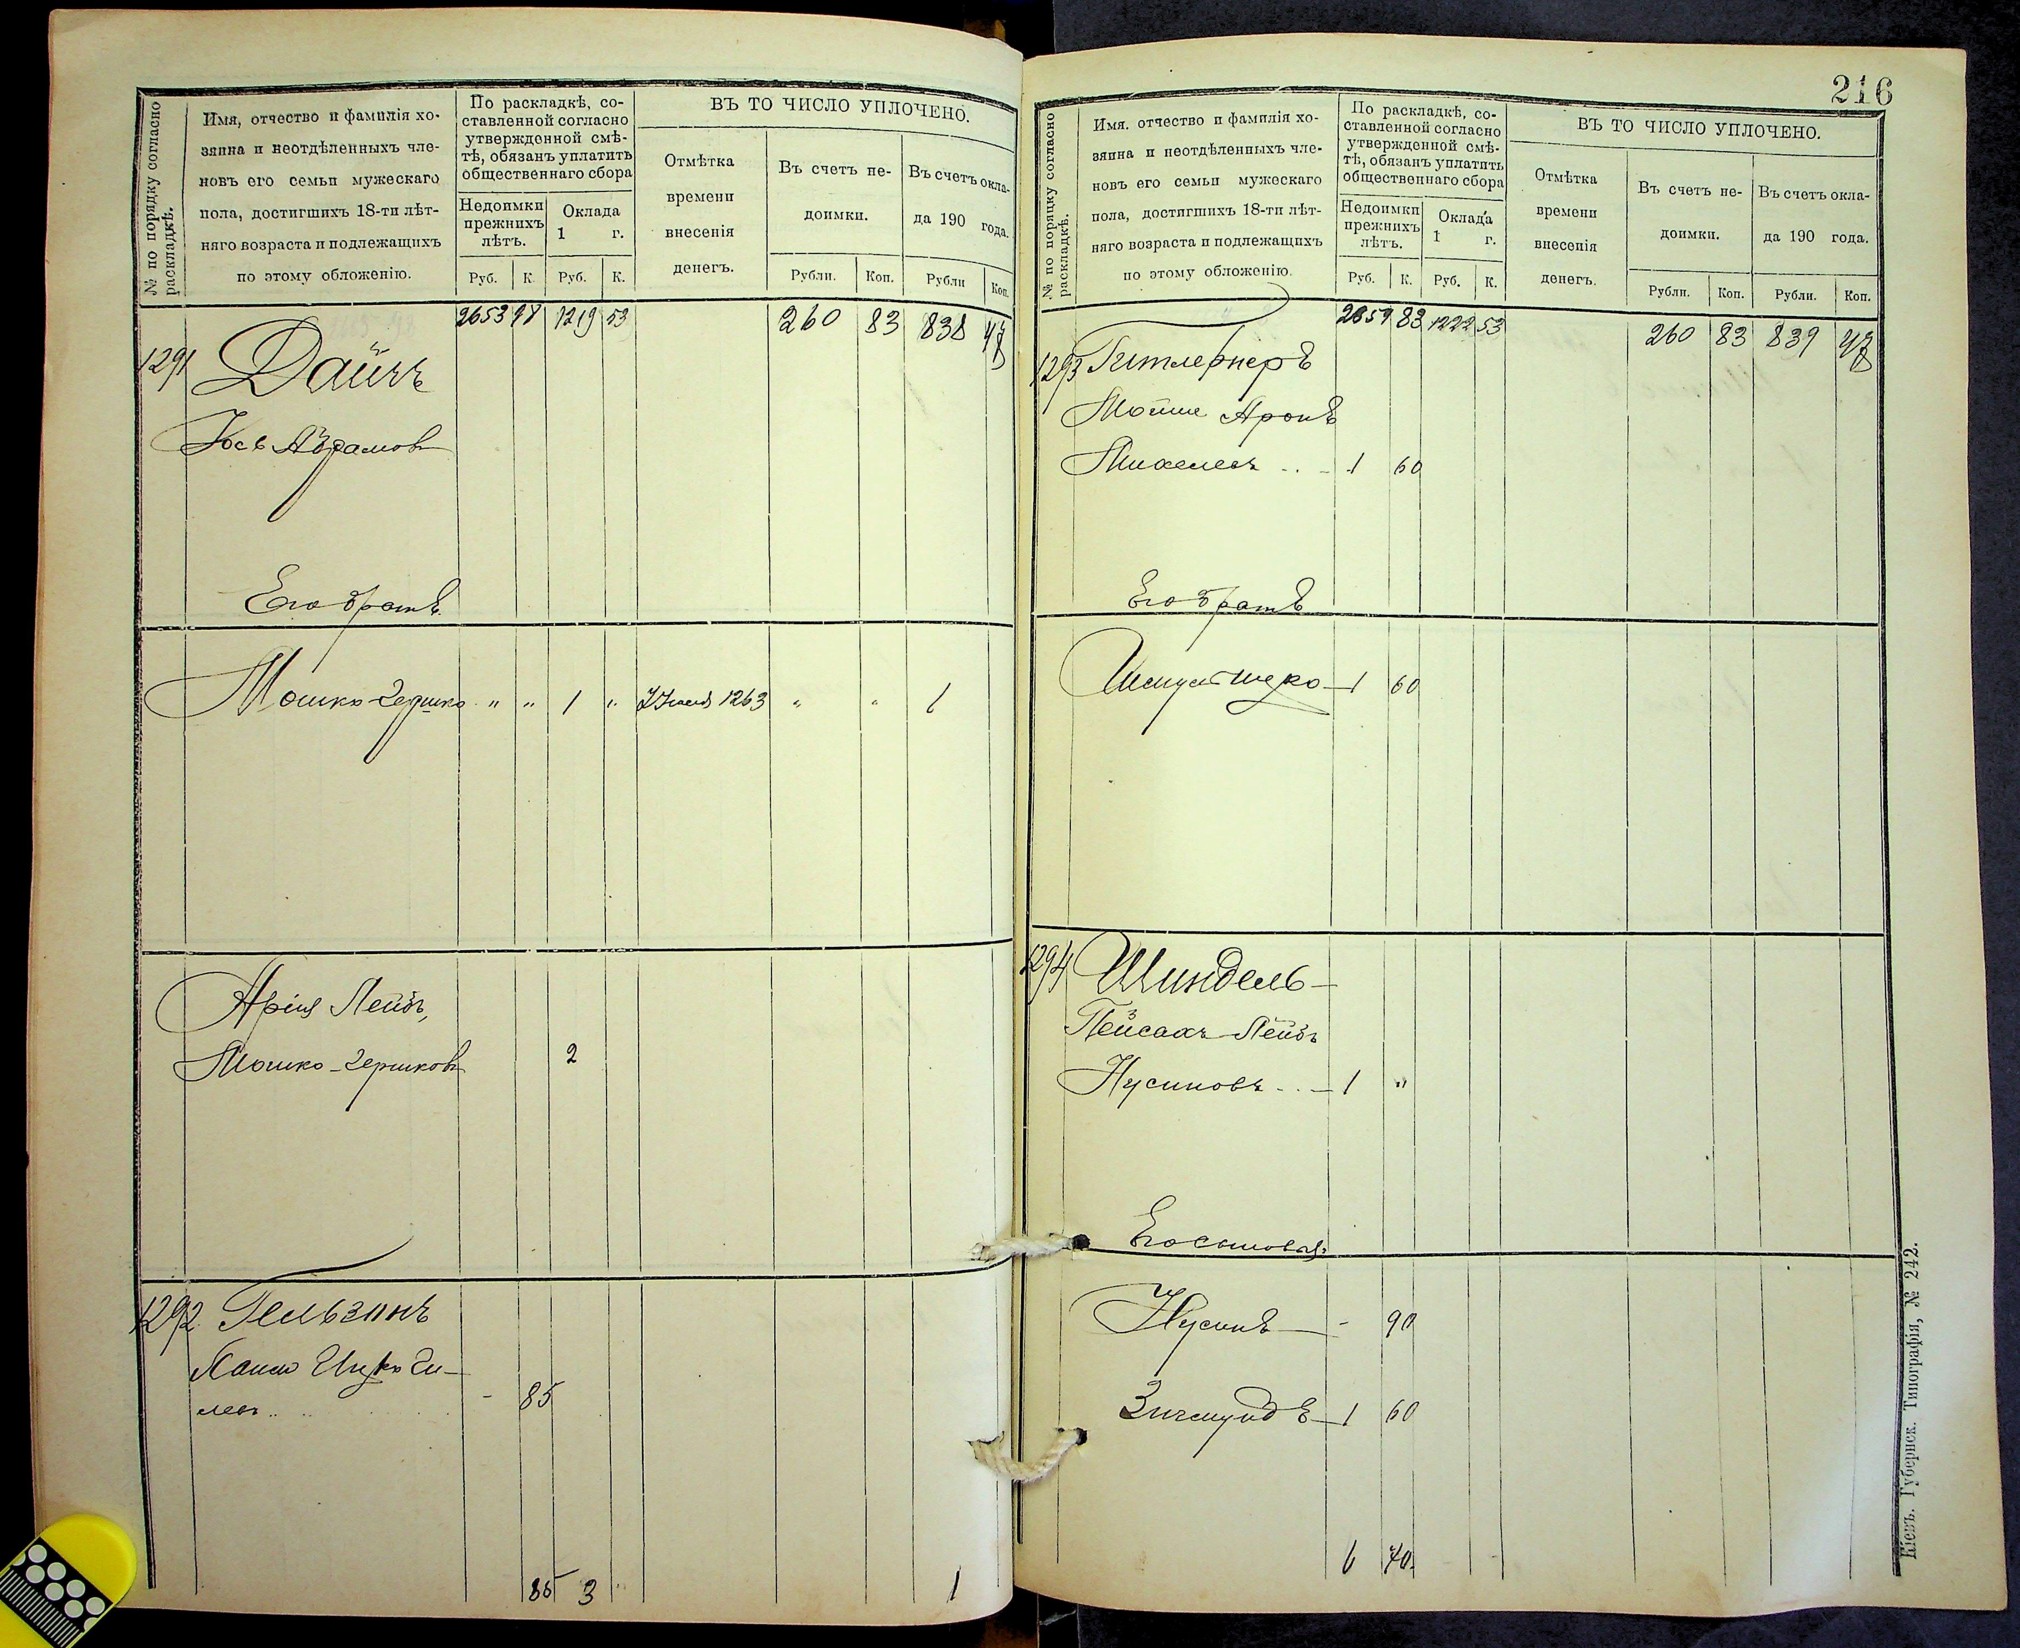 № по порядку согласно раскладкѣ.
Имя, отчество и фамилія хо-
зяина и неотдѣленныхъ чле-
новъ его семьи мужескаго
пола, достигшихъ 18-ти лѣт-
няго возраста и подлежащихъ
по этому обложенію.
По раскладкѣ, со-
ставленной согласно
утвержденной смѣ-
тѣ, обязанъ уплатить
общественнаго сбора
Недоимки прежнихъ лѣтъ.
Оклада 1 г.
Руб. К. Руб. К.
ВЪ ТО ЧИСЛО УПЛОЧЕНО.
Отмѣтка
времени
внесенія
денегъ.
Въ счетъ не-
доимки.
Въ счетъ окла-
да 190 года.
Рубли. Коп. Рубли Коп.
2653 98 1219 53 260 83 838 47
1291 Дайчъ
Іось Абрамовъ
Его братъ
Мошко-Гершко " " 1 " 1263 " " 1
Арія Лейбъ,
Мошко-Гершковъ 2
1292 Гельзинъ
Ицко Ги-
левъ - 85
85 3 1
216
№ по порядку согласно раскладкѣ.
Имя. отчество и фамилія хо-
зяина и неотдѣленныхъ чле-
новъ его семьи мужескаго
пола, достигшихъ 18-ти лѣт-
няго возраста и подлежащихъ
по этому обложенію.
По раскладкѣ, со-
ставленной согласно
утвержденной смѣ-
тѣ, обязанъ уплатить
общественнаго сбора
Недоимки прежнихъ лѣтъ.
Оклада 1 г.
Руб. К. Руб. К.
ВЪ ТО ЧИСЛО УПЛОЧЕНО.
Отмѣтка
времени
внесенія
денегъ.
Въ счетъ не-
доимки.
Въ счетъ окла-
да 190 года.
Рубли. Коп. Рубли. Коп.
2659 83 1222 53 260 83 839 47
1293 Гитлернеръ
Мойше Аронъ
Михелевъ - 1 60
Его братъ
1 60
1294 Шиндель
Пейсахъ-Лейбъ
Нусиновъ - 1 "
Его сыновья:
Нусинъ - 90
Зигмундъ 1 60
6 70
Кіевъ. Губернск. Типографія, № 242.